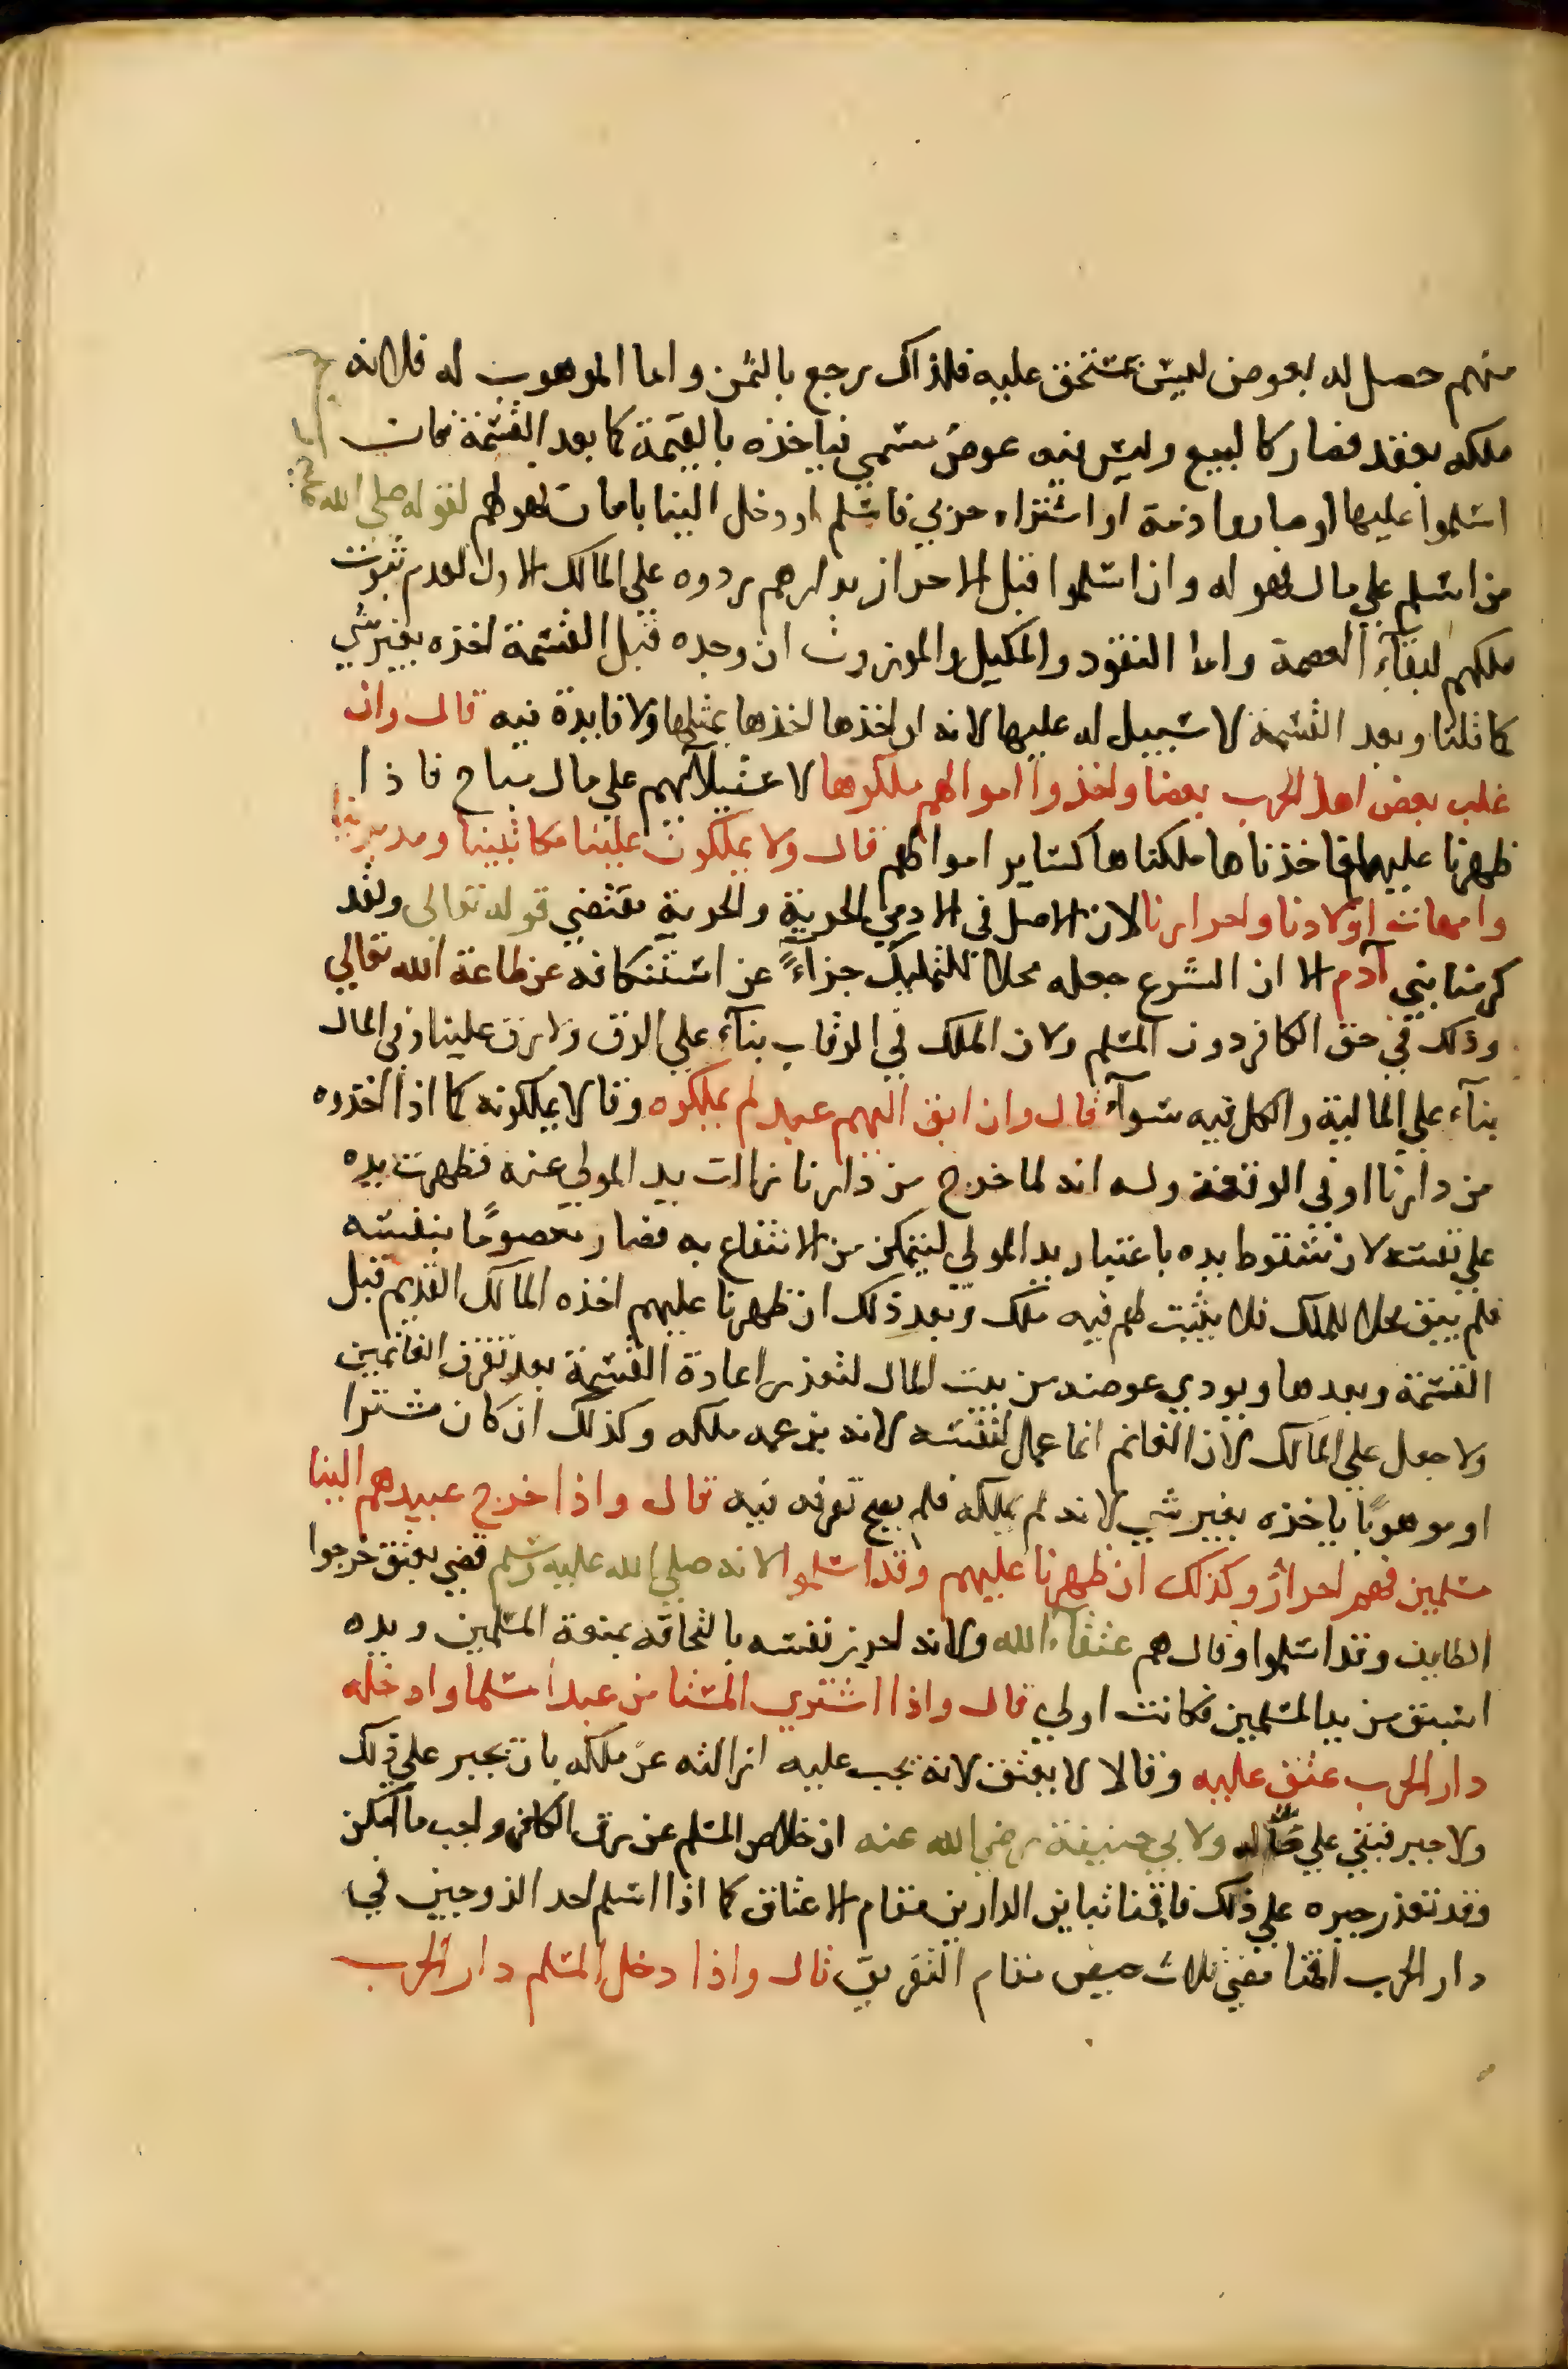 منهم حصل له بعوض ليس بمستحق عليه فلذاك يرجع بالثمن واما الموهوب له فلانه
ملكه بعقد فصار كالبيع وليس فيه عوض مسمي فياخذه بالقيمة كما بعد القسمة فان
اسلموا عليها او صاروا ذمة او اشتراه حربي فاسلم او دخل الينا بامان فهو لهم لقوله صلي الله
من اسلم علي مال فهو له وان اسلموا قبل الاحراز بدارهم ردوه علي المالك الاول لعدم ثبوت
ملكهم لبقآء العصمة واما النقود والمكيل والموزون ان وجده قبل القسمة اخذه بغير شي
كما قلنا وبعد القسمة لا سبيل له عليها لانه ان اخذها اخذها بمثلها ولا فايدة فيه قال وان
غلب بعض اهل الحرب بعضا واخذوا اموالهم ملكوها لاستيلآئهم علي مال مباح فاذا
ظهرنا عليهم فاخذناها ملكناها كساير اموالهم قال ولا يملكون علينا مكاتبينا ومدبرينا
وامهات اولادنا واحرارنا لان الاصل في الادمي الحرية والحرية مقتضي قوله تعالى ولقد
كرمنا بني آدم الا ان الشرع جعله محلا للتمليك جزاءً عن استنكافه عن طاعة الله تعالي
وذلك في حق الكافر دون المسلم ولان الملك في الرقاب بنآء علي الرق ولا رق علينا وفي المال
بنآء علي المالية والكل فيه سوآء قال وان ابق اليهم عبد لم يملكوه وقالا يملكونه كما اذا اخذوه
من دارنا او في الوقعة وله انه لما خرج من دارنا زالت يد المولي عنه فظهرت يده
علي نفسه لان سقوط يده باعتبار يد المولي ليتمكن من الانتفاع به فصار معصومًا بنفسه
فلم يبق محلا للملك فلا يثبت لهم فيه ملك وبعد ذلك ان ظهرنا عليهم اخذه المالك القديم قبل
القسمة وبعدها ويودي عوضه من بيت المال لتعذر اعادة القسمة بعد تفرق الغانمين
ولا جعل علي المالك لان الغانم انما عمل لنفسه لانه يزعمه ملكه وكذلك ان كان مشترا
او موهوبًا ياخذه بغير شي لانه لم يملكه فلم يصح تصرفه فيه قال واذا خرج عبيدهم الينا
مسلمين فهم احرار وكذلك ان ظهرنا عليهم وقد اسلموا لانه صلي الله عليه وسلم قضي بعتق خرجوا
الطايف وقد اسلموا وقال هم عتقآء الله ولانه احرز نفسه بالتحاقه بمنعة المسلمين ويده
اسبق من يد المسلمين فكانت اولي قال واذا اشتري المستامن عبدا مسلما وادخله
دار الحرب عتق عليه وقالا لا يعتق لانه يجب عليه ازالته عن ملكه بان يجبر علي ذلك
ولا جبر فبقي علي حاله ولابي حنيفة رضي الله عنه ان خلاص المسلم عن رق الكافر واجب ما امكن
وقد تعذر جبره علي ذلك فاقمنا تباين الدارين مقام الاعتاق كما اذا اسلم احد الزوجين في
دار الحرب اقمنا مضي ثلاث حيض مقام التفريق قال واذا دخل المسلم دار الحرب